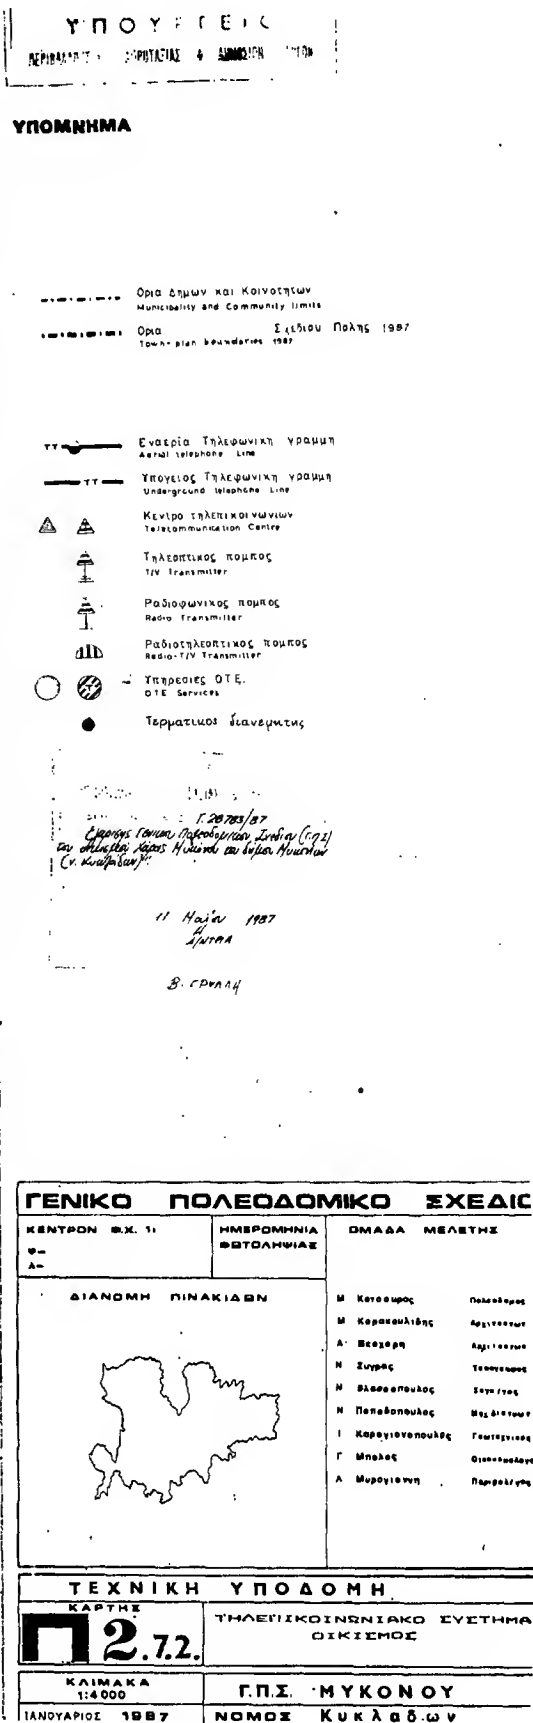 ΥΠΟΥΡΓΕΙΟ
ΠΕΡΙΒΑΛΛΟΝΤΟΣ & ΔΗΜΟΣΙΩΝ
ΥΠΟΜΝΗΜΑ
Ορια Δημων και Κοινοτητων
Municipality and Community limits
Ορια Σχεδιου Πολης 1987
Town-plan boundaries 1987
ΤΤ Εναερια Τηλεφωνικη γραμμη
Aerial telephone Line
ΤΤ Υπογειος Τηλεφωνικη γραμμη
Underground telephone Line
Κεντρο τηλεπικοινωνιων
Telecommunication Centre
Τηλεοπτικος πομπος
T/V Transmitter
Ραδιοφωνικος πομπος
Radio Transmitter
Ραδιοτηλεοπτικος πομπος
Radio-T/V Transmitter
Υπηρεσιες ΟΤΕ.
OTE Services
Τερματικος διανεμητης
Γ.26783/87
Γενικου Πολεοδομικου Σχεδίου (Γ.Π.Σ)
του Χώρας Μυκόνου του δήμου Μυκονίων
(ν. Κυκλάδων)".
11 Μαΐου 1987
ΓΕΝΙΚΟ ΠΟΛΕΟΔΟΜΙΚΟ ΣΧΕΔΙΟ
ΚΕΝΤΡΟΝ Φ.Χ. 1:
φ=
λ=
ΗΜΕΡΟΜΗΝΙΑ
ΦΩΤΟΛΗΨΙΑΣ
ΟΜΑΔΑ ΜΕΛΕΤΗΣ
ΔΙΑΝΟΜΗ ΠΙΝΑΚΙΔΩΝ
Μ Κατσουρος Πολεοδομος
Μ Καρακουλιδης Αρχιτεκτων
Α Αρχιτεκτων
Ν Ζυγρας Τοπογραφος
Ν Βλασσοπουλος Συγκ/γος
Ν Παπαδοπουλος
Ι Καραγιαννοπουλος Γεωτεχνικος
Γ Μπαλας Οικονομολογος
Λ Μυρογιαννη
ΤΕΧΝΙΚΗ ΥΠΟΔΟΜΗ
ΚΑΡΤΗΣ
Π 2.7.2.
ΤΗΛΕΠΙΚΟΙΝΩΝΙΑΚΟ ΣΥΣΤΗΜΑ
ΟΙΚΙΣΜΟΣ
ΚΛΙΜΑΚΑ
1:4000
Γ.Π.Σ. ΜΥΚΟΝΟΥ
ΙΑΝΟΥΑΡΙΟΣ 1987
ΝΟΜΟΣ Κυκλαδων